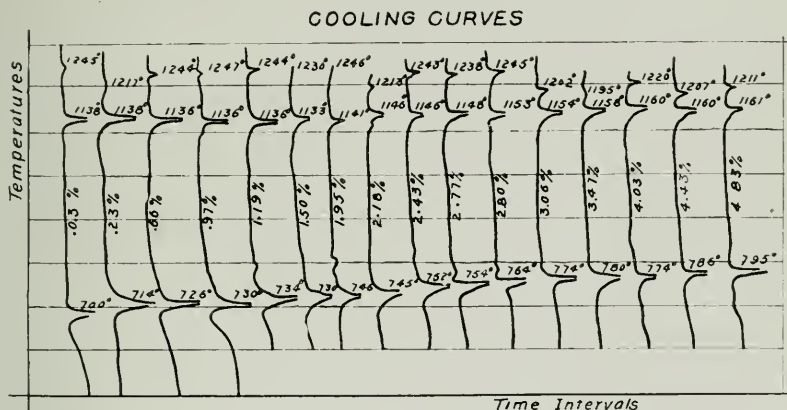 COOLING CURVES
Temperatures
1245° 1217° 1244° 1247° 1244° 1230° 1246° 1213° 1243° 1238° 1245° 1202° 1195° 1220° 1207° 1211°
1138° 1138° 1136° 1136° 1136° 1133° 1141° 1146° 1146° 1148° 1153° 1154° 1158° 1160° 1160° 1161°
.03% .23% .66% .97% 1.19% 1.50% 1.95% 2.18% 2.43% 2.77% 2.80% 3.06% 3.47% 4.03% 4.43% 4.83%
700° 714° 726° 730° 734° 730° 746 745° 752° 754° 764° 774° 780° 774° 786° 795°
Time Intervals